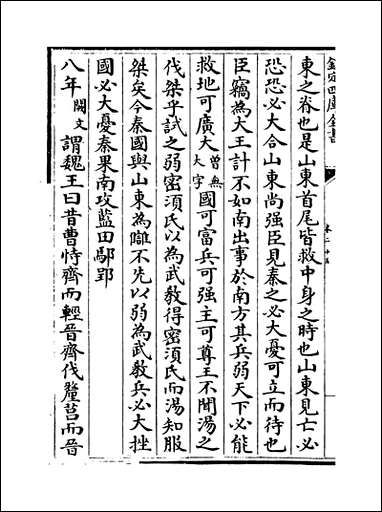 欽定四庫全書
東之脊也是山東首尾皆救中身之時也山東見亡必
恐恐必大合山東尚强臣見秦之必大憂可立而待也
臣竊為大王計不如南出事於南方其兵弱天下必能
救地可廣大曾無大字國可富兵可强主可尊王不聞湯之
伐桀乎試之弱密須氏以為武教得密須氏而湯知服
桀矣今秦國與山東為讎不先以弱為武教兵必大挫
國必大憂秦果南攻藍田鄢郢
八年闕文謂魏王曰昔曹恃齊而輕晉齊伐釐莒而晉